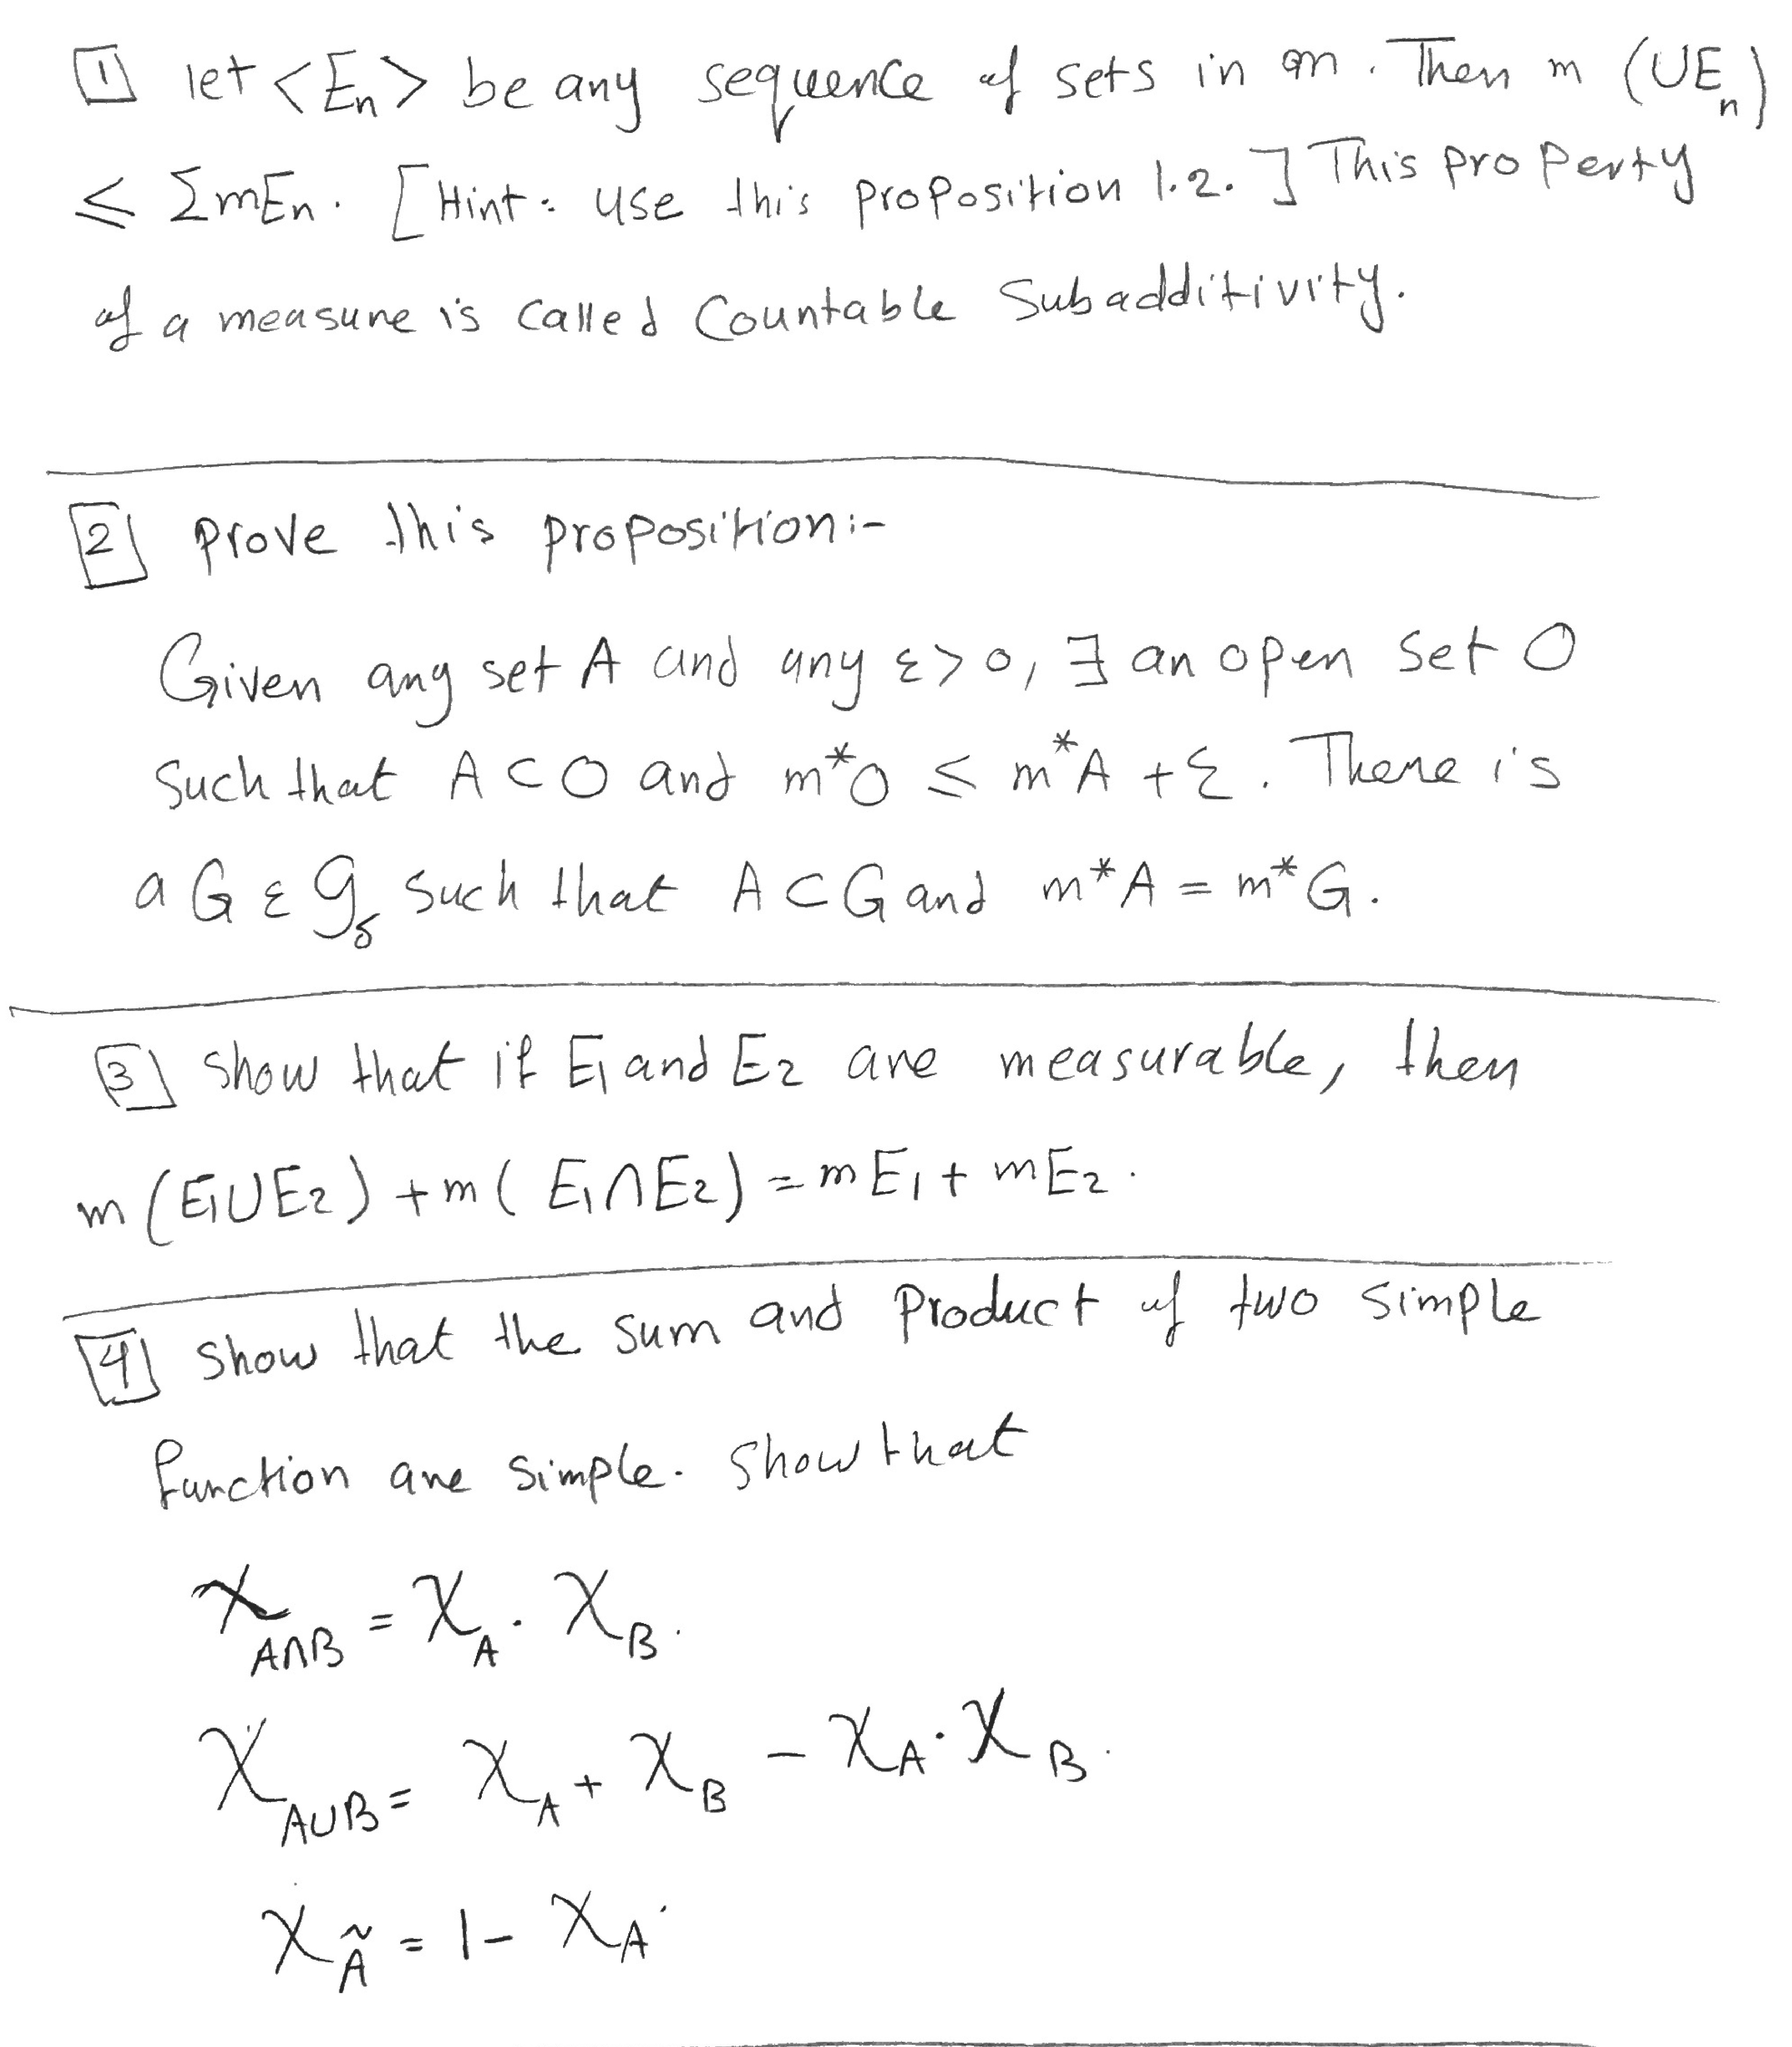 1 let <En> be any sequence of sets in 𝔪. Then m (∪En)
≤ ΣmEn. [Hint: use this proposition 1.2.] This property
of a measure is called Countable Subadditivity.
2 prove this proposition:-
Given any set A and any ε>0, ∃ an open set O
such that A⊂O and m*O ≤ m*A + ε. There is
a G ε 𝒢δ such that A⊂G and m*A = m*G.
3 show that if E1 and E2 are measurable, then
m(E1∪E2) + m(E1∩E2) = mE1 + mE2.
4 show that the sum and product of two simple
function are simple. show that
χA∩B = χA · χB.
χA∪B = χA + χB − χA·χB.
χÃ = 1 − χA.